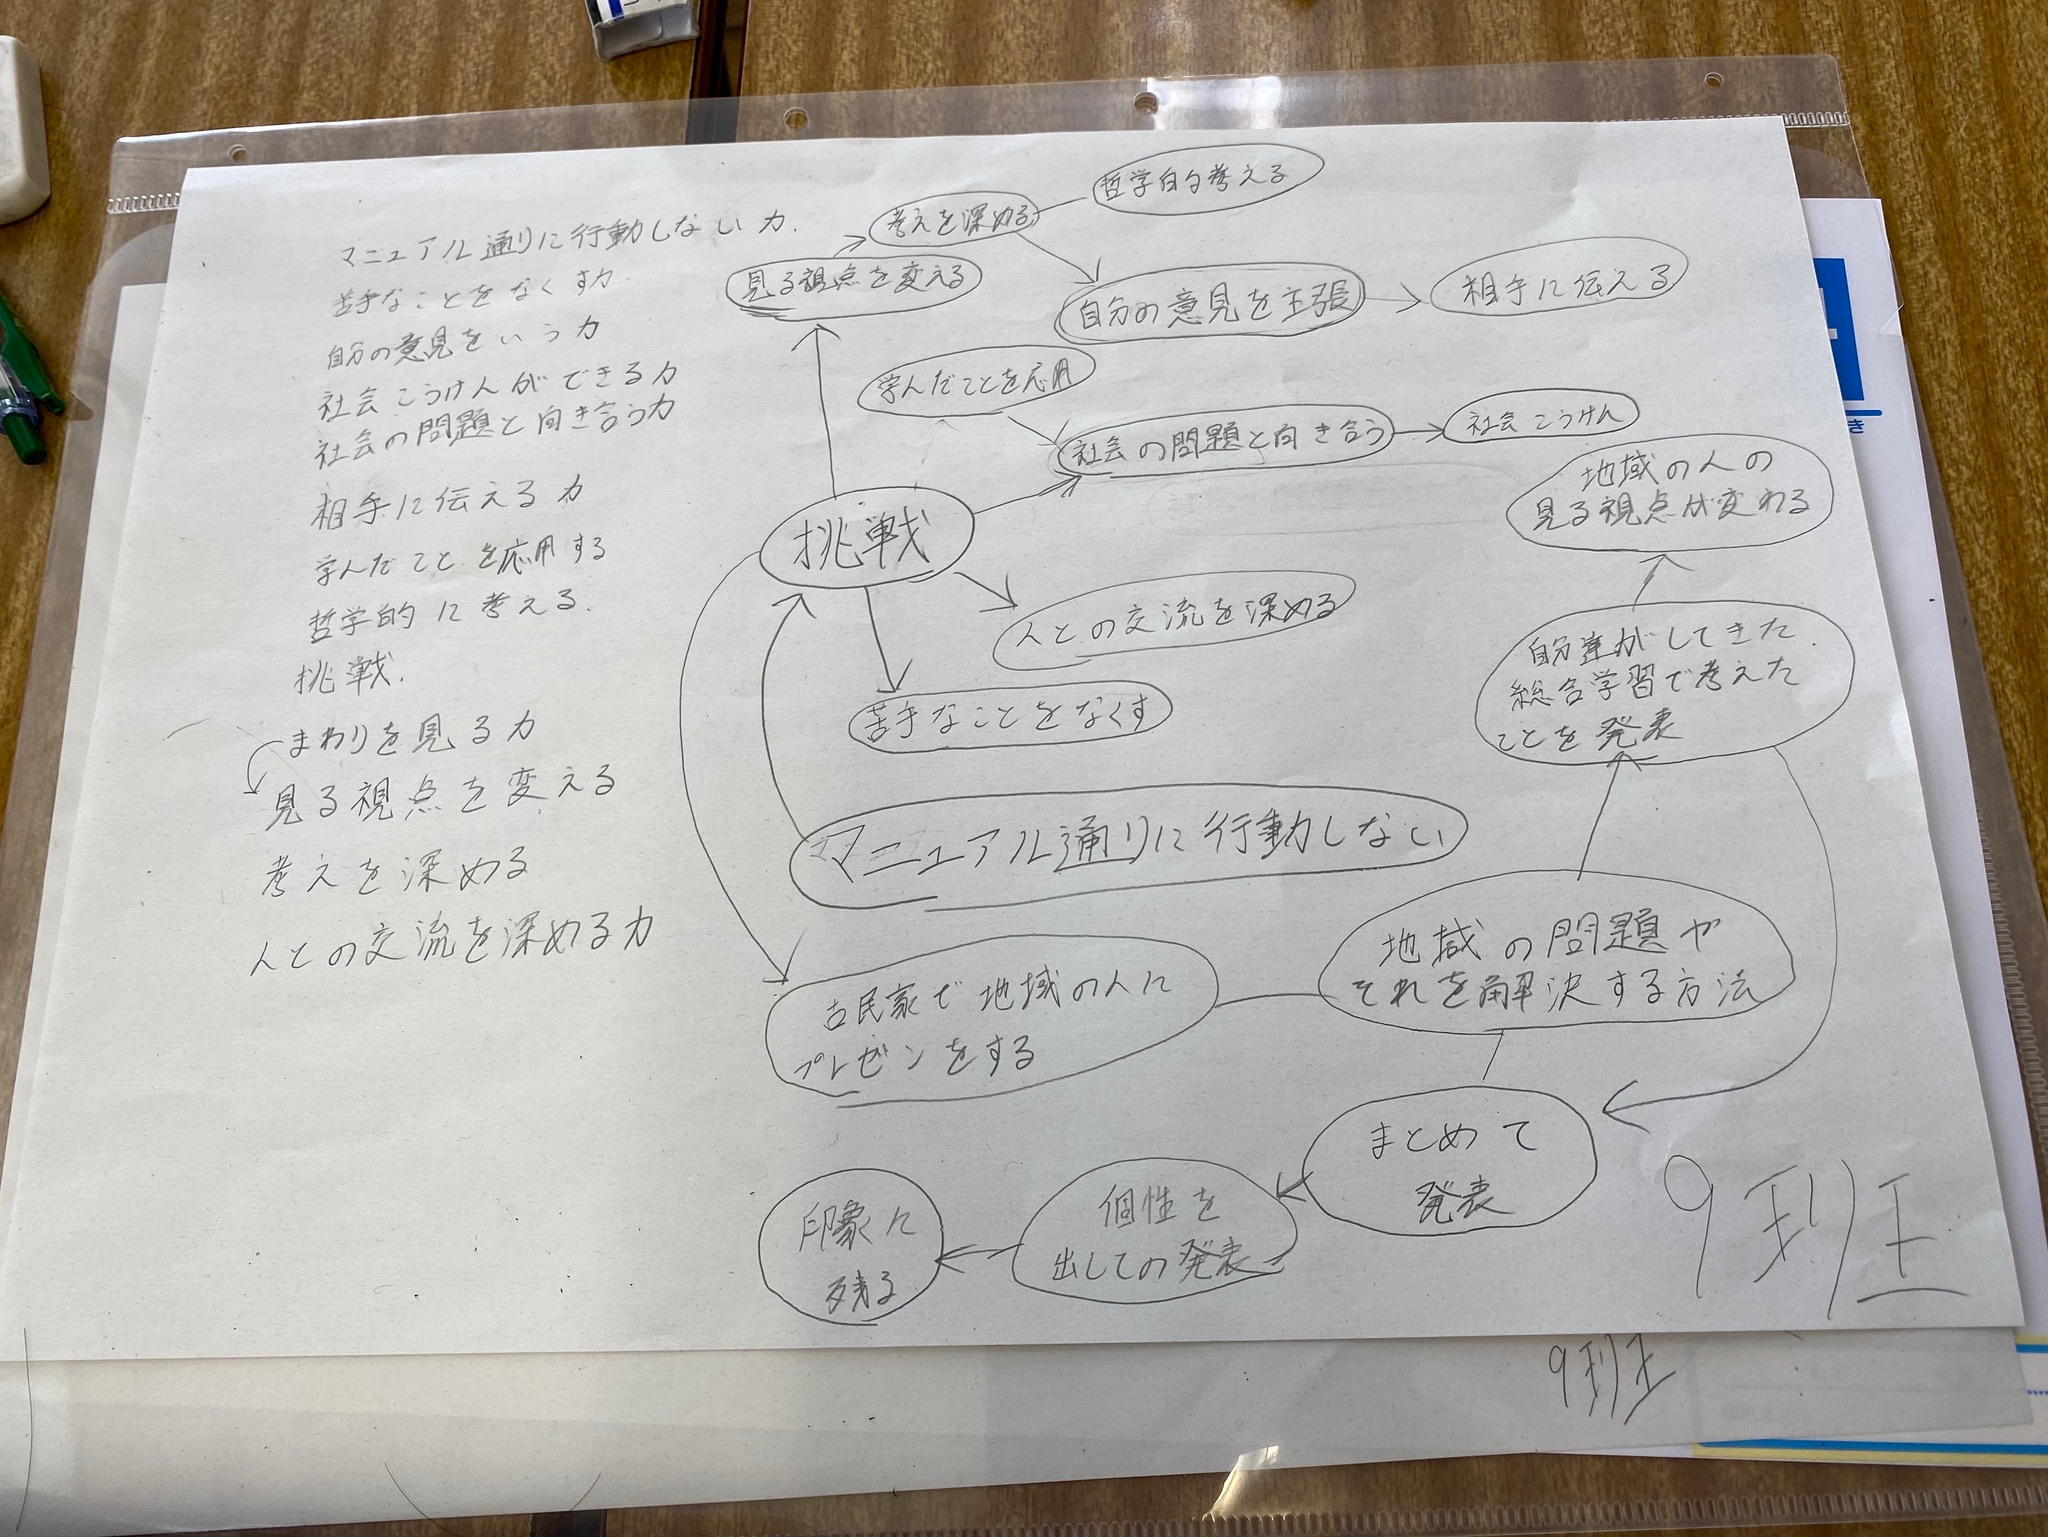 マニュアル通りに行動しない力.
苦手なことをなくす力.
自分の意見をいう力
社会こうけんができる力
社会の問題と向き合う力
相手に伝える力
学んだことを応用する
哲学的に考える.
挑戦.
まわりを見る力
見る視点を変える
考えを深める
人との交流を深める力
哲学的考える
考えを深める
見る視点を変える
自分の意見を主張
相手に伝える
学んだことを応用
社会の問題と向き合う
社会こうけん
挑戦
人との交流を深める
苦手なことをなくす
マニュアル通りに行動しない
地域の人の
見る視点が変わる
自分達がしてきた
総合学習で考えた
ことを発表
地域の問題や
それを解決する方法
古民家で地域の人に
プレゼンをする
まとめて
発表
個性を
出しての発表
印象に
残る
9班
9班
き